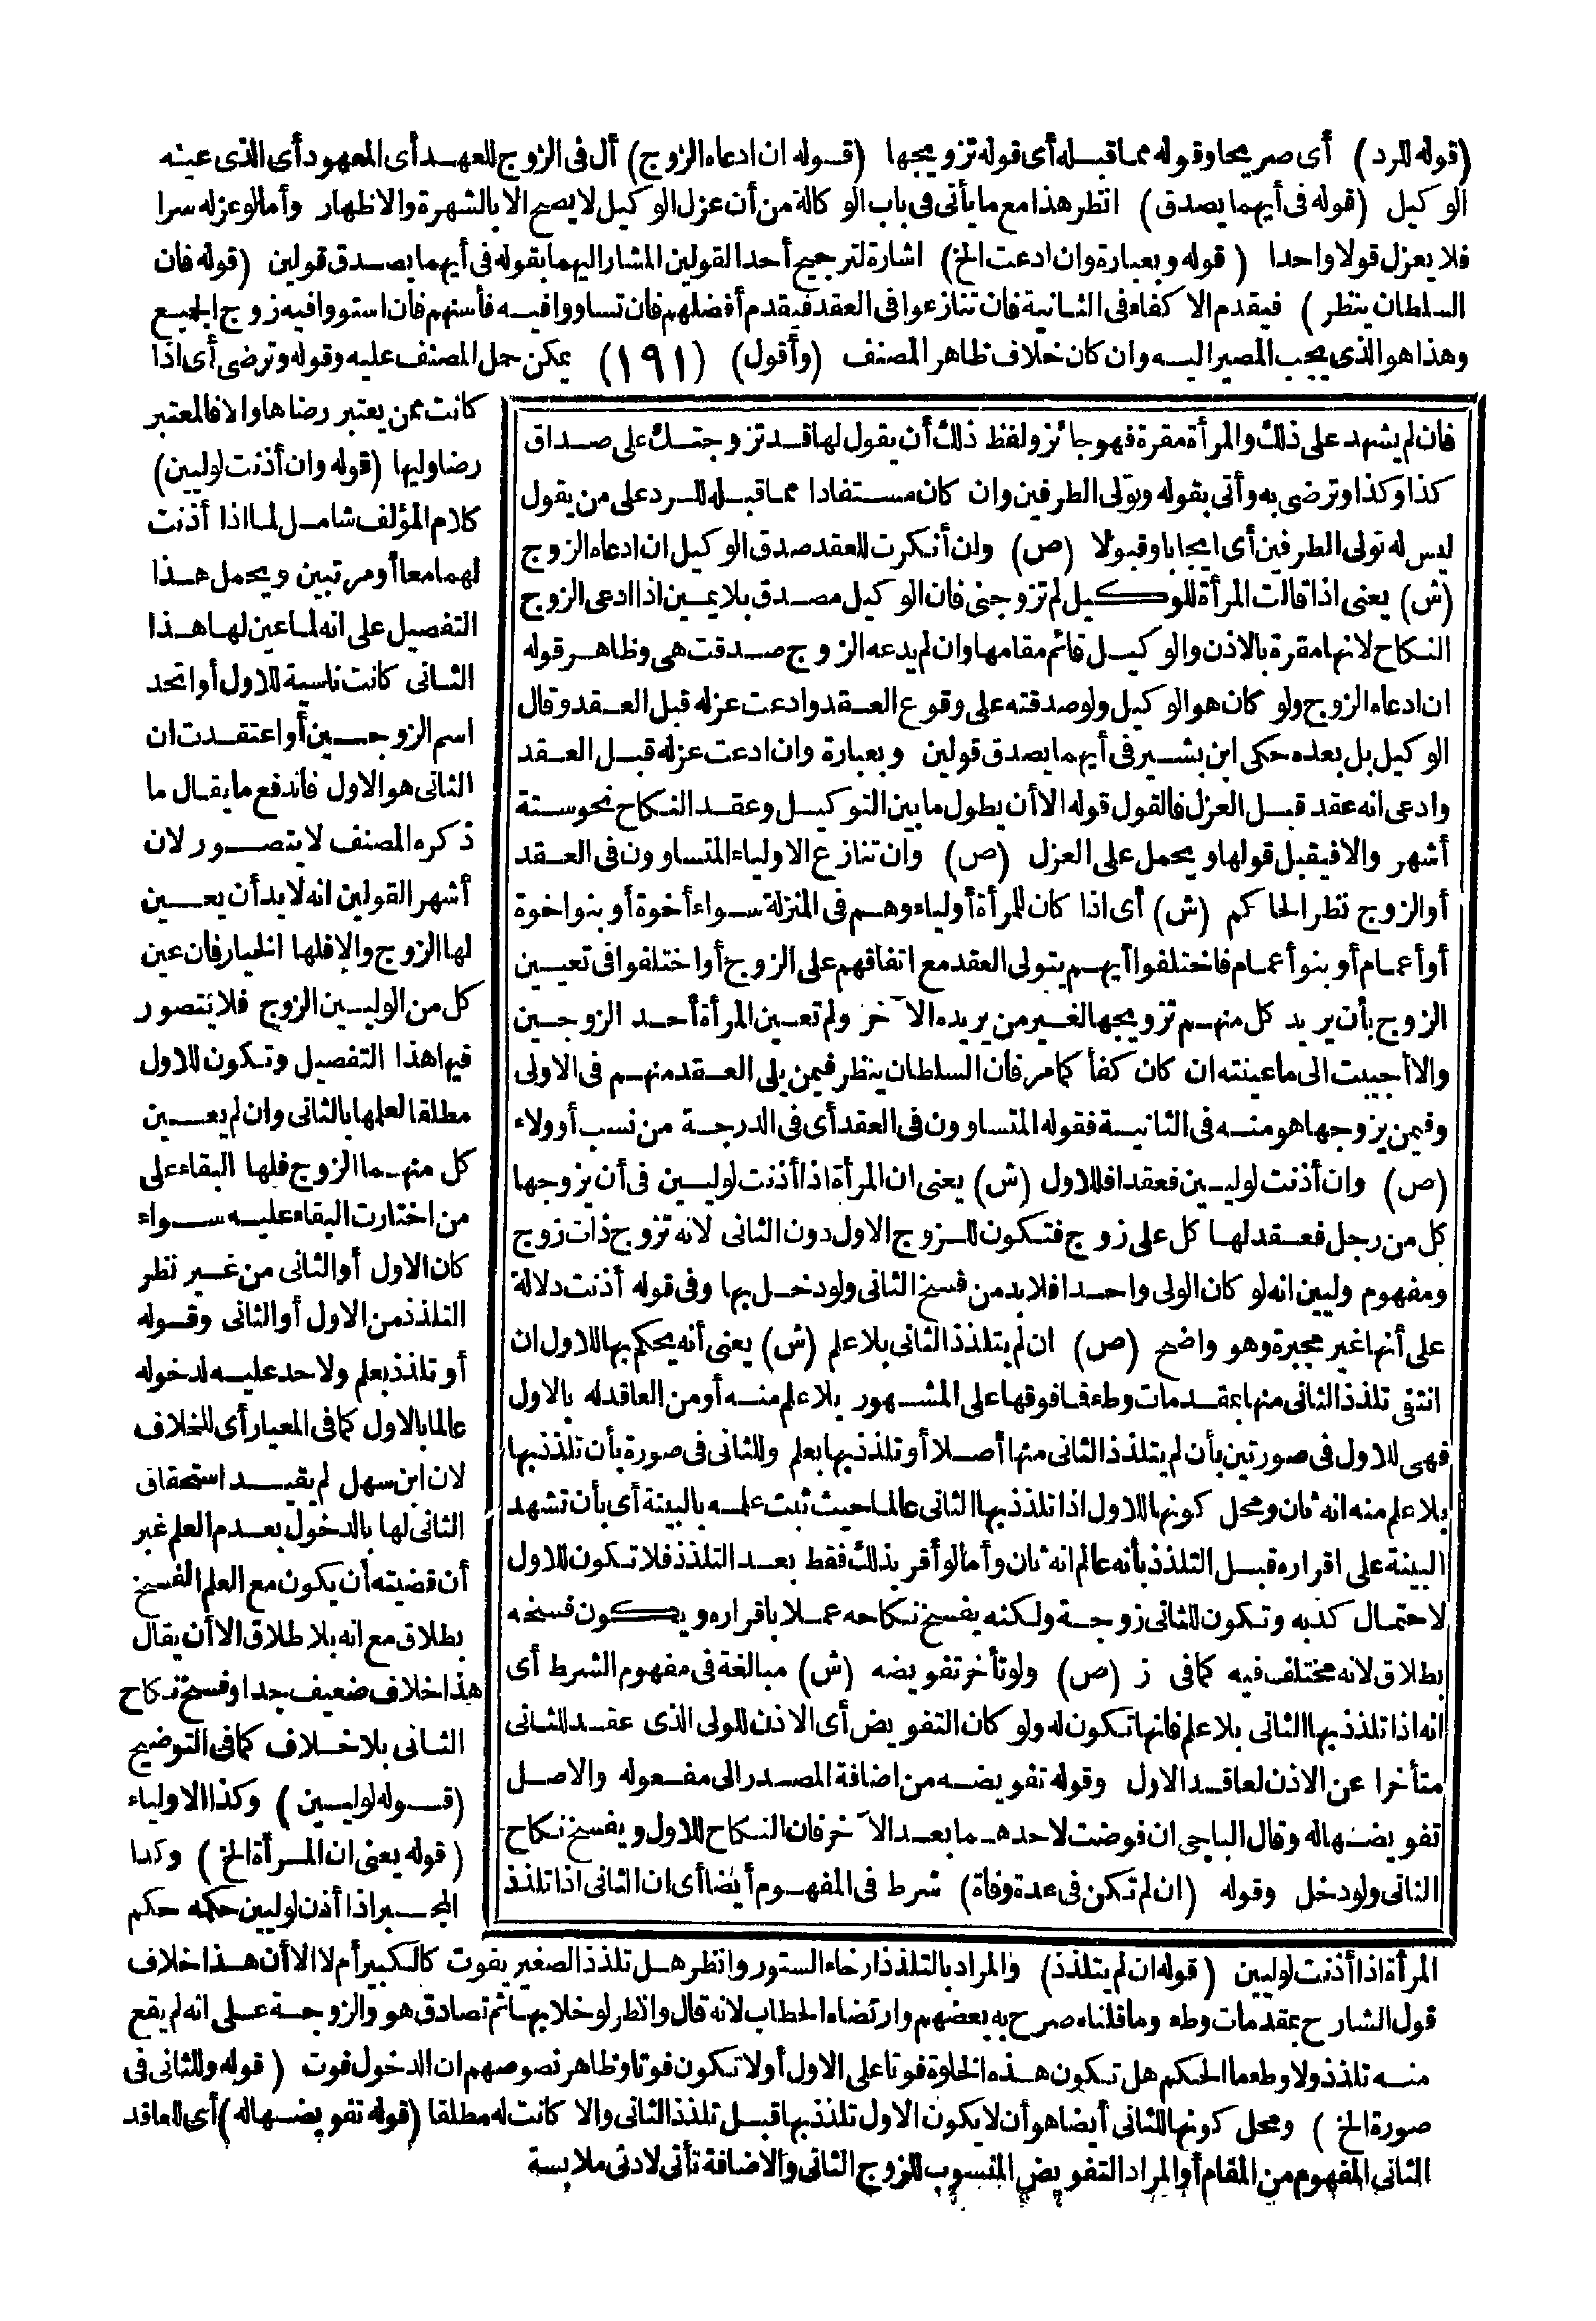 (قوله للرد) أى صريحا وقوله مما قبله أى قوله تزويجها (قوله ان ادعاه الزوج) أل فى الزوج للعهد أى المعهود أى الذى عينه
الوكيل (قوله فى أيهما يصدق) انظر هذا مع ما يأتى فى باب الوكالة من أن عزل الوكيل لا يصح الا بالشهرة والاظهار وأما لو عزله سرا
فلا يعزل قولا واحدا (قوله وبعبارة وان ادعت الخ) اشارة لترجيح أحد القولين المشار اليهما بقوله فى أيهما يصدق قولين (قوله فان
السلطان ينظر) فيقدم الاكفاء فى الثانية فان تنازعوا فى العقد فيقدم أفضلهم فان تساووا فيه فأسنهم فان استووا فيه زوج الجميع
وهذا هو الذى يجب المصير اليه وان كان خلاف ظاهر المصنف (وأقول) (١٩١) يمكن حمل المصنف عليه وقوله وترضى أى اذا
كانت ممن يعتبر رضاها والا فالمعتبر
رضا وليها (قوله وان أذنت لوليين)
كلام المؤلف شامل لما اذا أذنت
لهما معا أو مرتبين ويحمل هذا
التفصيل على انه لما عين لها هذا
الثانى كانت ناسية للاول أو اتحد
اسم الزوجين أو اعتقدت ان
الثانى هو الاول فاندفع ما يقال ما
ذكره المصنف لا يتصور لان
أشهر القولين انه لا بد أن يعين
لها الزوج والا فلها الخيار فان عين
كل من الوليين الزوج فلا يتصور
فيها هذا التفصيل وتكون للاول
مطلقا لعلمها بالثانى وان لم يعين
كل منهما الزوج فلها البقاء على
من اختارت البقاء عليه سواء
كان الاول أو الثانى من غير نظر
التلذذ من الاول أو الثانى وقوله
أو تلذذ بعلم ولا حد عليه لدخوله
عالما بالاول كما فى المعيار أى للخلاف
لان ابن سهل لم يقيد استحقاق
الثانى لها بالدخول بعدم العلم غير
أن قضيته أن يكون مع العلم الفسخ
بطلاق مع انه بلا طلاق الا أن يقال
هذا خلاف ضعيف جدا وفسخ نكاح
الثانى بلا خلاف كما فى التوضيح
(قوله لوليين) وكذا الاولياء
(قوله يعنى ان المرأة الخ) وكذا
المجبر اذا أذن لوليين حكمه حكم
فان لم يشهد على ذلك والمرأة مقرة فهو جائز ولفظ ذلك أن يقول لها قد تزوجتك على صداق
كذا وكذا وترضى به وأتى بقوله وتولى الطرفين وان كان مستفادا مما قبله للرد على من يقول
ليس له تولى الطرفين أى ايجابا وقبولا (ص) وان أنكرت العقد صدق الوكيل ان ادعاه الزوج
(ش) يعنى اذا قالت المرأة للوكيل لم تزوجنى فان الوكيل مصدق بلا يمين اذا ادعى الزوج
النكاح لانها مقرة بالاذن والوكيل قائم مقامها وان لم يدعه الزوج صدقت هى وظاهر قوله
ان ادعاه الزوج ولو كان هو الوكيل ولو صدقته على وقوع العقد وادعت عزله قبل العقد وقال
الوكيل بل بعده حكى ابن بشير فى أيهما يصدق قولين وبعبارة وان ادعت عزله قبل العقد
وادعى انه عقد قبل العزل فالقول قوله الا أن يطول ما بين التوكيل وعقد النكاح نحو ستة
أشهر والا فيقبل قولها ويحمل على العزل (ص) وان تنازع الاولياء المتساوون فى العقد
أو الزوج نظر الحاكم (ش) أى اذا كان للمرأة أولياء وهم فى المنزلة سواء أخوة أو بنو اخوة
أو أعمام أو بنو أعمام فاختلفوا أيهم يتولى العقد مع اتفاقهم على الزوج أو اختلفوا فى تعيين
الزوج بأن يريد كل منهم تزويجها لغير من يريده الآخر ولم تعين المرأة أحد الزوجين
والا أجيبت الى ما عينته ان كان كفأ كما مر فان السلطان ينظر فيمن يلى العقد منهم فى الاولى
وفيمن يزوجها هو منه فى الثانية فقوله المتساوون فى العقد أى فى الدرجة من نسب أو ولاء
(ص) وان أذنت لوليين فعقدا فللاول (ش) يعنى ان المرأة اذا أذنت لوليين فى أن يزوجها
كل من رجل فعقد لها كل على زوج فتكون للزوج الاول دون الثانى لانه تزوج ذات زوج
ومفهوم وليين انه لو كان الولى واحدا فلا بد من فسخ الثانى ولو دخل بها وفى قوله أذنت دلالة
على أنها غير مجبرة وهو واضح (ص) ان لم يتلذذ الثانى بلا علم (ش) يعنى أنه يحكم بها للاول ان
انتفى تلذذ الثانى منها بمقدمات وطء فما فوقها على المشهور بلا علم منه أو من العاقد له بالاول
فهى للاول فى صورتين بأن لم يتلذذ الثانى منها أصلا أو تلذذ بها بعلم وللثانى فى صورة بأن تلذذ بها
بلا علم منه انه ثان ومحل كونها للاول اذا تلذذ بها الثانى عالما حيث ثبت علمه بالبينة أى بأن تشهد
البينة على اقراره قبل التلذذ بأنه عالم انه ثان وأما لو أقر بذلك فقط بعد التلذذ فلا تكون للاول
لاحتمال كذبه وتكون للثانى زوجة ولكنه يفسخ نكاحه عملا باقراره ويكون فسخه
بطلاق لانه مختلف فيه كما فى ز (ص) ولو تأخر تفويضه (ش) مبالغة فى مفهوم الشرط أى
انه اذا تلذذ بها الثانى بلا علم فانها تكون له ولو كان التفويض أى الاذن للولى الذى عقد للثانى
متأخرا عن الاذن لعاقد الاول وقوله تفويضه من اضافة المصدر الى مفعوله والاصل
تفويضها له وقال الباجى ان فوضت لاحدهما بعد الآخر فان النكاح للاول ويفسخ نكاح
الثانى ولو دخل وقوله (ان لم تكن فى عدة وفاة) شرط فى المفهوم أيضا أى ان الثانى اذا تلذذ
المرأة اذا أذنت لوليين (قوله ان لم يتلذذ) والمراد بالتلذذ ارخاء الستور وانظر هل تلذذ الصغير يفوت كالكبير أم لا الا أن هذا خلاف
قول الشارح بمقدمات وطء وما قلناه صرح به بعضهم وارتضاه الحطاب لانه قال وانظر لو خلا بها ثم تصادق هو والزوجة على انه لم يقع
منه تلذذ ولا وطء ما الحكم هل تكون هذه الخلوة فوتا على الاول أو لا تكون فوتا وظاهر نصوصهم ان الدخول فوت (قوله وللثانى فى
صورة الخ) ومحل كونها للثانى أيضا هو أن لا يكون الاول تلذذ بها قبل تلذذ الثانى والا كانت له مطلقا (قوله تفويضها له) أى للعاقد
الثانى المفهوم من المقام أو المراد التفويض المنسوب للزوج الثانى والاضافة تأتى لادنى ملابسة